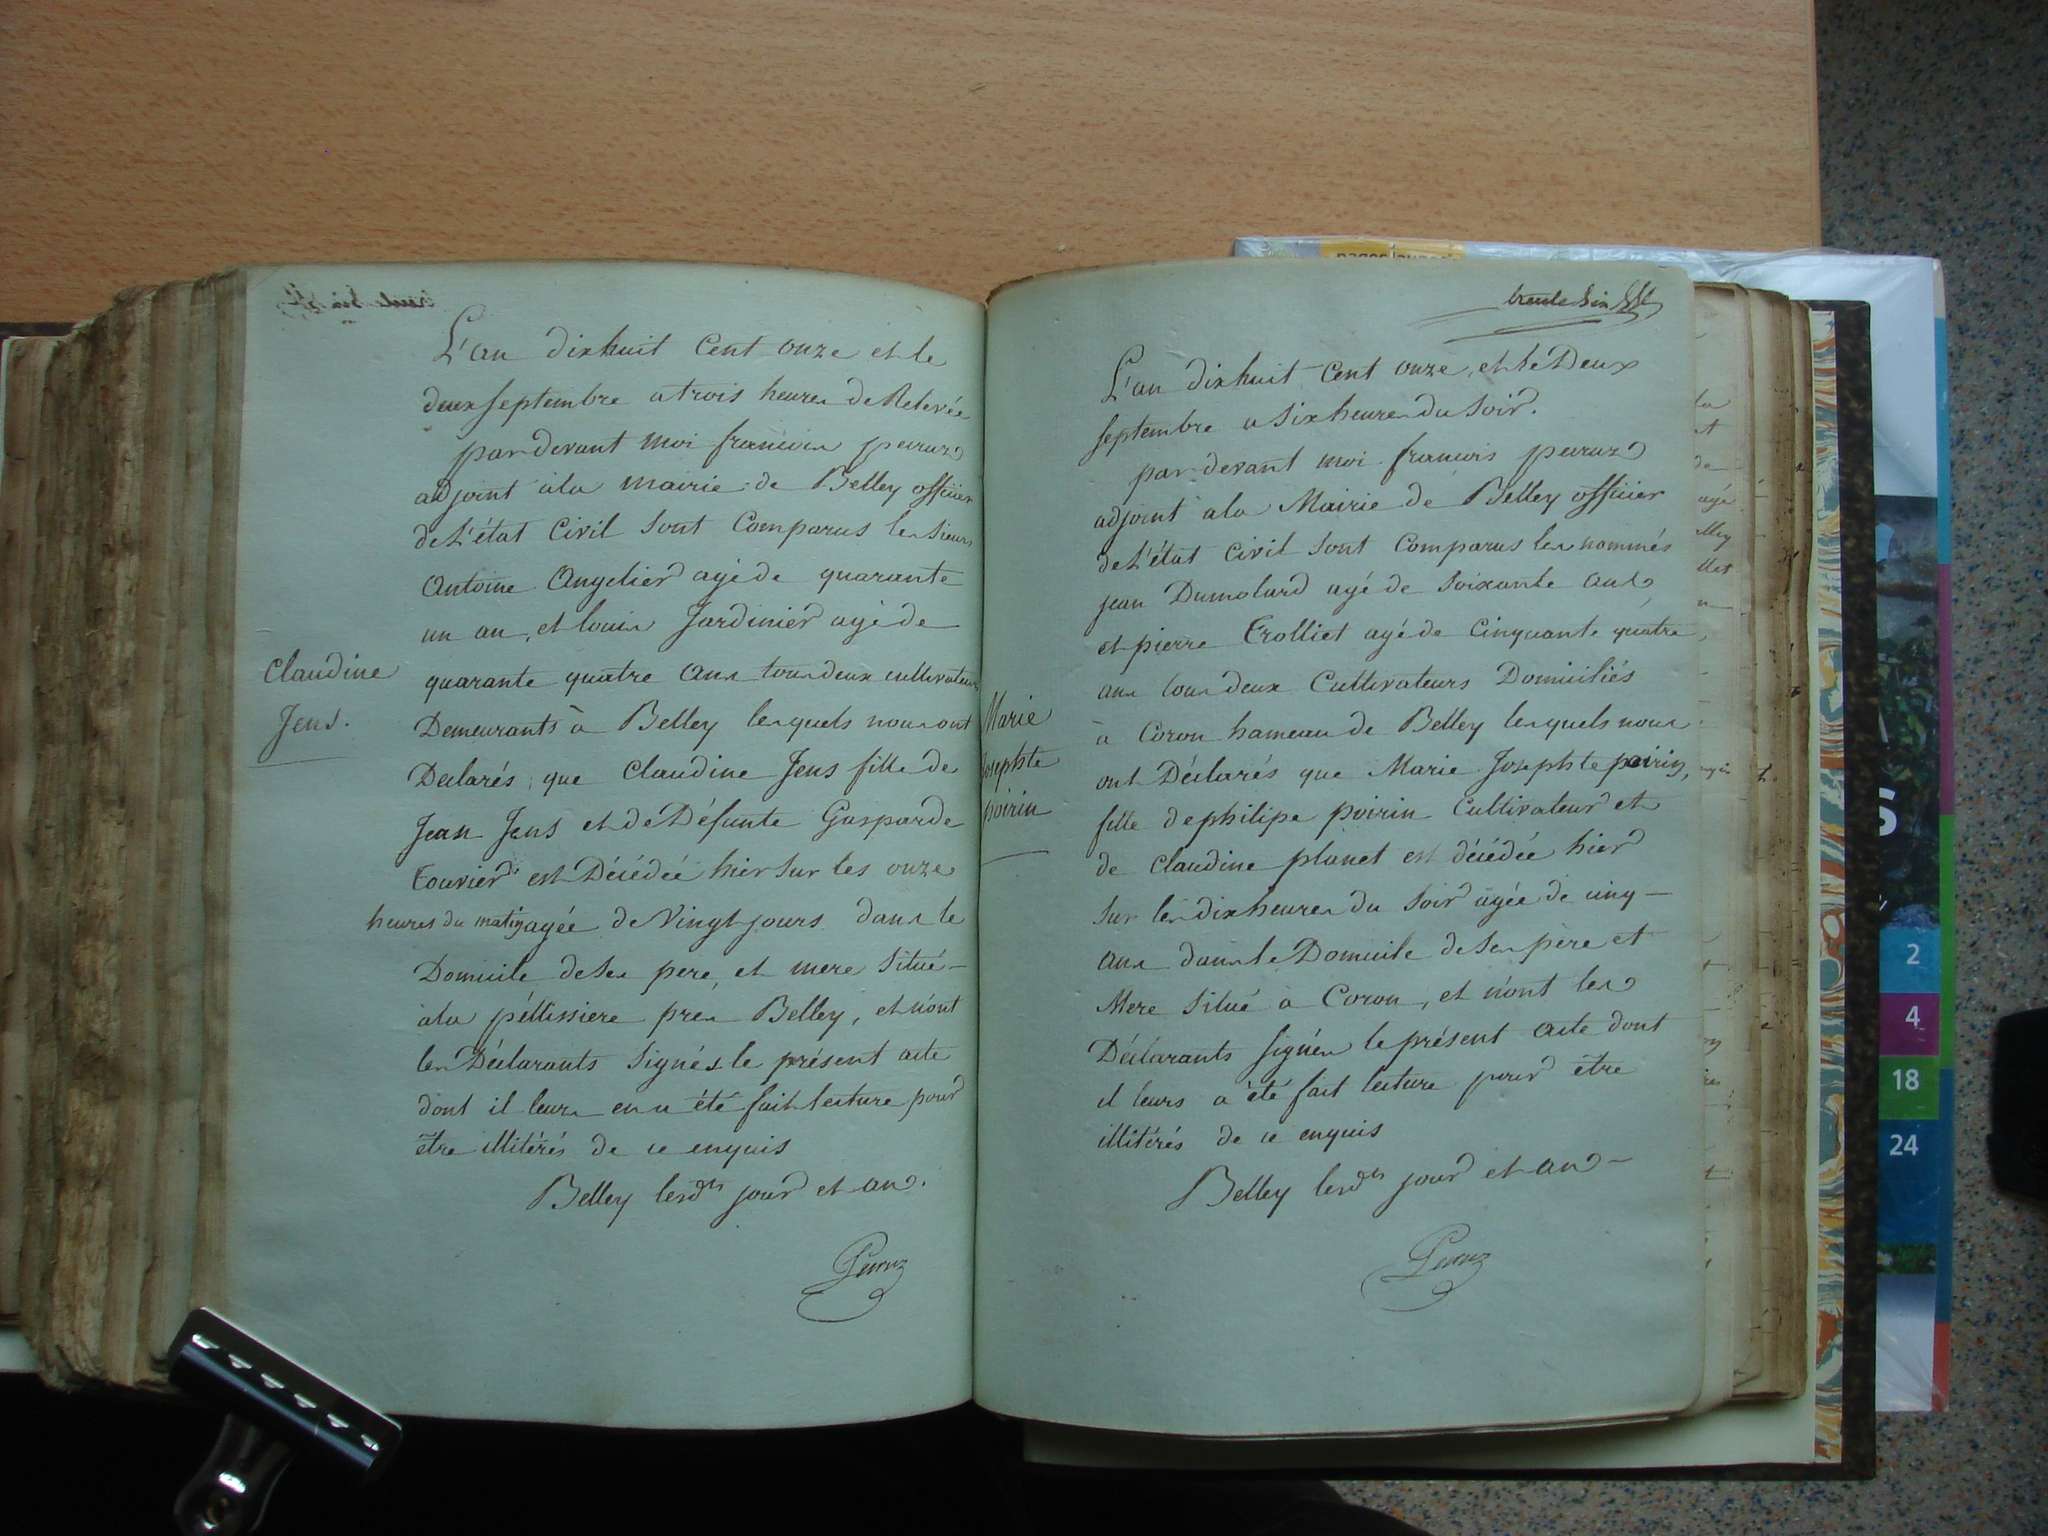 L'an dixhuit Cent onze et le
deux septembre a trois heures de Relevée
pardevant moi francois peruz
adjoint à la mairie de Belley officier
de L'état Civil sont Comparus les sieurs
Antoine Angelier agé de quarante
un an, et louis Jardinier agé de
quarante quatre ans tous deux cultivateurs
Demeurants à Belley lesquels nous ont
Déclarés, que Claudine Jens fille de
Jean Jens et de Défunte Gasparde
Couvier est Décédée hier sur les onze
heures du matin agée de Vingt jours dans le
Domicile de ses pere, et mere situé
à la péllissiere pres Belley, et n'ont
les Déclarants signés le présent acte
dont il leurs en a été fait lecture pour
être illitérés de ce enquis
Belley lesdts jour et an.
Peruz
Claudine
Jens.
trente six
L'an dixhuit Cent onze, et le Deux
septembre a six heures du soir.
pardevant moi francois peruz
adjoint à la Mairie de Belley officier
de L'état Civil sont Comparus les nommés
jean Dumolard agé de soixante ans
et pierre Trolliet agé de Cinquante quatre
ans tous deux Cultivateurs Domiciliés
à Coron hameau de Belley lesquels nous
ont Déclarés que Marie Josephte poirin,
fille de philipe poirin Cultivateur et
de Claudine planet est décédée hier
sur les dix heures du soir agée de cinq
ans dans le Domicile de ses père et
Mere situé à Coron, et n'ont les
Déclarants signés le présent acte dont
il leurs a été fait lecture pour être
illitérés de ce enquis
Belley lesdts jour et an
Peruz
Marie
Josephte
poirin
S
2
4
18
24